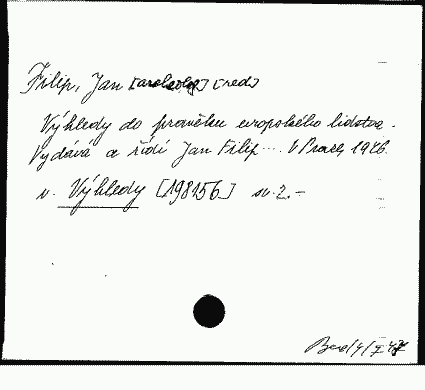 Filip, Jan [archeolog] [red]
Výhledy do pravěku evropského lidstva.
Vydává a řídí Jan Filip... V Praze, 1946.
v. Výhledy [198156] sv. 2. -